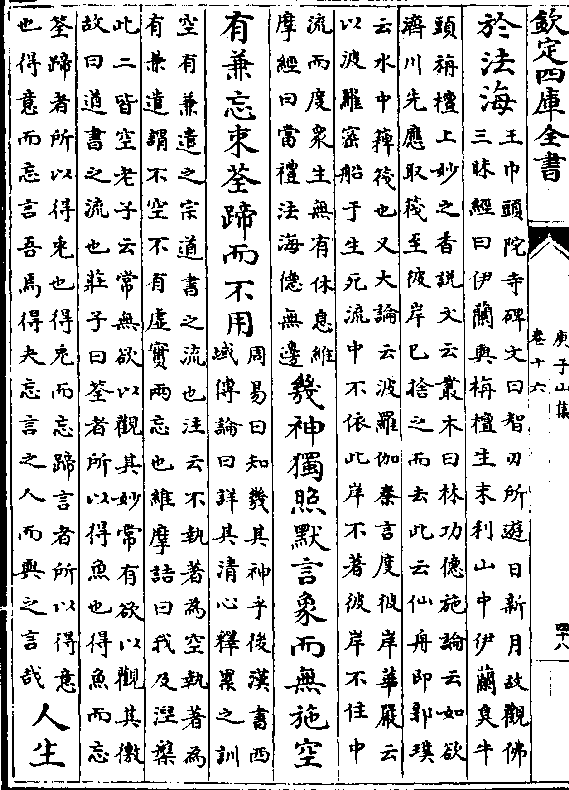 欽定四庫全書
庾子山集
卷十六
四十八
於法海
王巾頭陀寺碑文曰智刃所遊日新月故觀佛
三昧經曰伊蘭與栴檀生末利山中伊蘭臭牛
頭栴檀上妙之香説文云叢木曰林功德施論云如欲
濟川先應取筏至彼岸已捨之而去此云仙舟即郭璞
云水中簰筏也又大論云波羅伽秦言度彼岸華嚴云
以波羅蜜船于生死流中不依此岸不著彼岸不住中
流而度衆生無有休息維
摩經曰當禮法海德無邊
幾神獨照默言象而無施空
有兼忘束荃蹄而不用
周易曰知幾其神乎後漢書西
域傳論曰詳其清心釋累之訓
空有兼遣之宗道書之流也注云不執著為空執著為
有兼遣謂不空不有虛實兩忘也維摩詰曰我及涅槃
此二皆空老子云常無欲以觀其妙常有欲以觀其徼
故曰道書之流也莊子曰荃者所以得魚也得魚而忘
荃蹄者所以得兎也得兎而忘蹄言者所以得意
也得意而忘言吾焉得夫忘言之人而與之言哉
人生